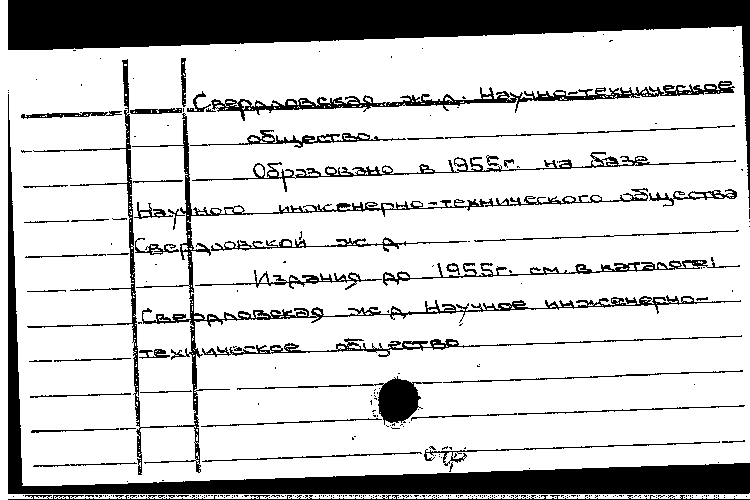 Свердловская ж.д. Научно-техническое
общество.
Образовано в 1955г. на базе
Научного инженерно-технического общества
Свердловской ж.д.
Издания до 1955г. см. в каталоге:
Свердловская ж.д. Научное инженерно-
техническое общество